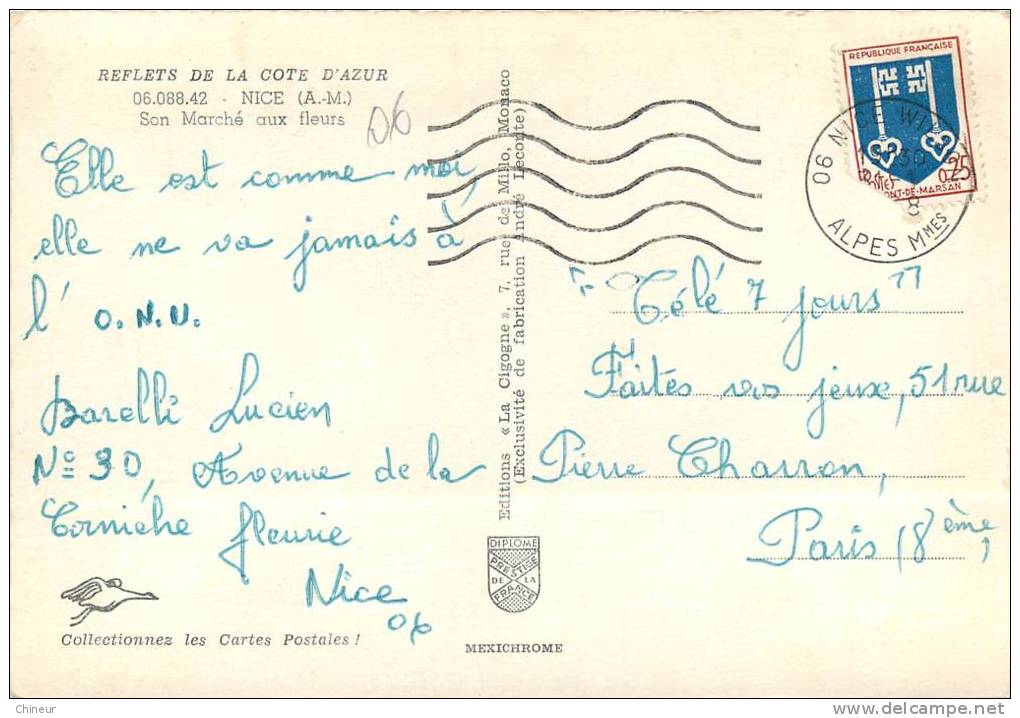 REFLETS DE LA COTE D'AZUR
06.088.42 - NICE (A.-M.)
Son Marché aux fleurs
06
Elle est comme moi,
elle ne va jamais à
l' O.N.U.
Barelli Lucien
Nº 30, Avenue de la
Corniéhe fleurie
Nice
06
Collectionnez les Cartes Postales !
Editions « La Cigogne », 7, rue de Millo, Monaco
(Exclusivité de fabrication André Leconte)
DIPLOME
PRESTIGE
DE LA
FRANCE
MEXICHROME
REPUBLIQUE FRANÇAISE
0,25
MONT-DE-MARSAN
06 NICE
ALPES MMES
"Télé 7 jours"
Faites vos jeux, 51 rue
Pierre Charron,
Paris (8ème)
Chineur
delcampe.net